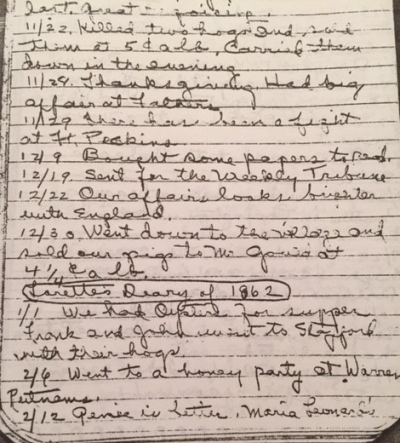 last great rejoicing.
11/22. Killed two hogs and sold
them at 5¢ a lb. Carried them
down in the evening
11/28. Thanksgiving. Had big
affair at Fathers
11/29 There has been a fight
at Ft. Peckins
12/9 Bought some papers to read.
12/19. Sent for the Weekly Tribune
12/22 Our affairs looks brighter
with England.
12/30. Went down to the village and
sold our pigs to Mr at
4 1/4 ¢ a lb.
Diary of 1862
1/1 We had Oysters for supper
Frank and John went to Stafford
with their hogs.
2/6 Went to a honey party at Warren
Putnams.
2/12 is better. Maria Leonards